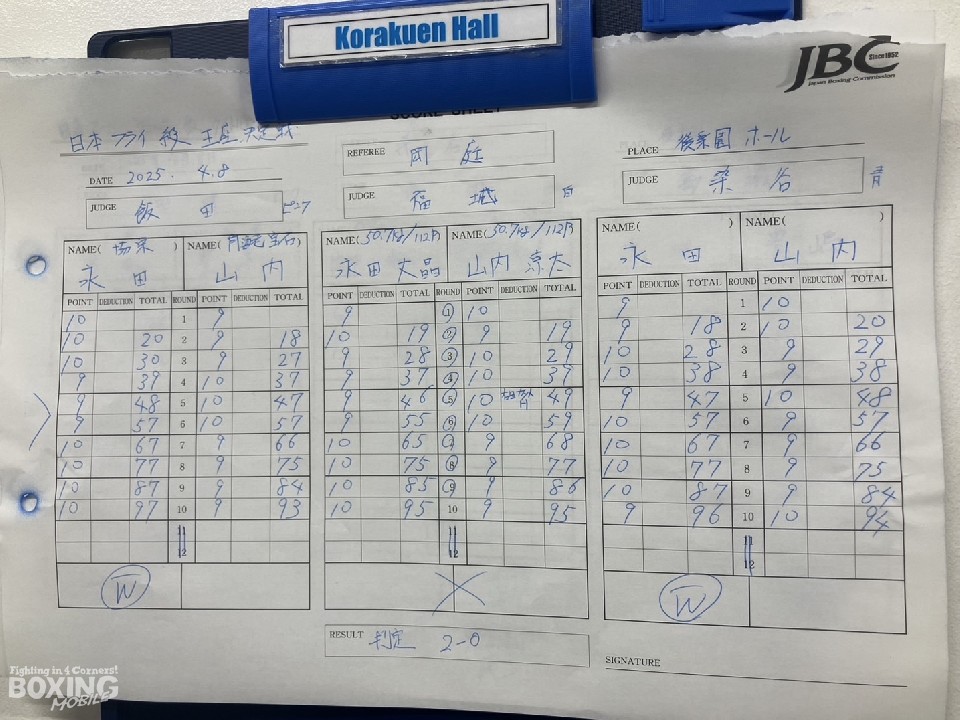 Korakuen Hall
JBC Since 1952
Japan Boxing Commission
SCORE SHEET
日本フライ級 王座決定戦
REFEREE 岡庭
PLACE 後楽園ホール
DATE 2025. 4.8
JUDGE 飯田
JUDGE 福地 白
JUDGE 染谷 青
NAME( 協栄 ) NAME(
永田 山内
NAME(50.7kg/112P NAME(50.7kg/112P
永田丈晶 山内涼太
NAME( ) NAME( )
永田 山内
POINT DEDUCTION TOTAL ROUND POINT DEDUCTION TOTAL
10 1 9
10 20 2 9 18
10 30 3 9 27
9 39 4 10 37
9 48 5 10 47
9 57 6 10 57
10 67 7 9 66
10 77 8 9 75
10 87 9 9 84
10 97 10 9 93
11
12
W
POINT DEDUCTION TOTAL ROUND POINT DEDUCTION TOTAL
9 1 10
10 19 2 9 19
9 28 3 10 29
9 37 4 10 39
9 46 5 10 49
9 55 6 10 59
10 65 7 9 68
10 75 8 9 77
10 85 9 9 86
10 95 10 9 95
11
12
POINT DEDUCTION TOTAL ROUND POINT DEDUCTION TOTAL
9 1 10
9 18 2 10 20
10 28 3 9 29
10 38 4 9 38
9 47 5 10 48
10 57 6 9 57
10 67 7 9 66
10 77 8 9 75
10 87 9 9 84
9 96 10 10 94
11
12
W
RESULT 判定 2-0
SIGNATURE
Fighting in 4 Corners!
BOXING
MOBILE